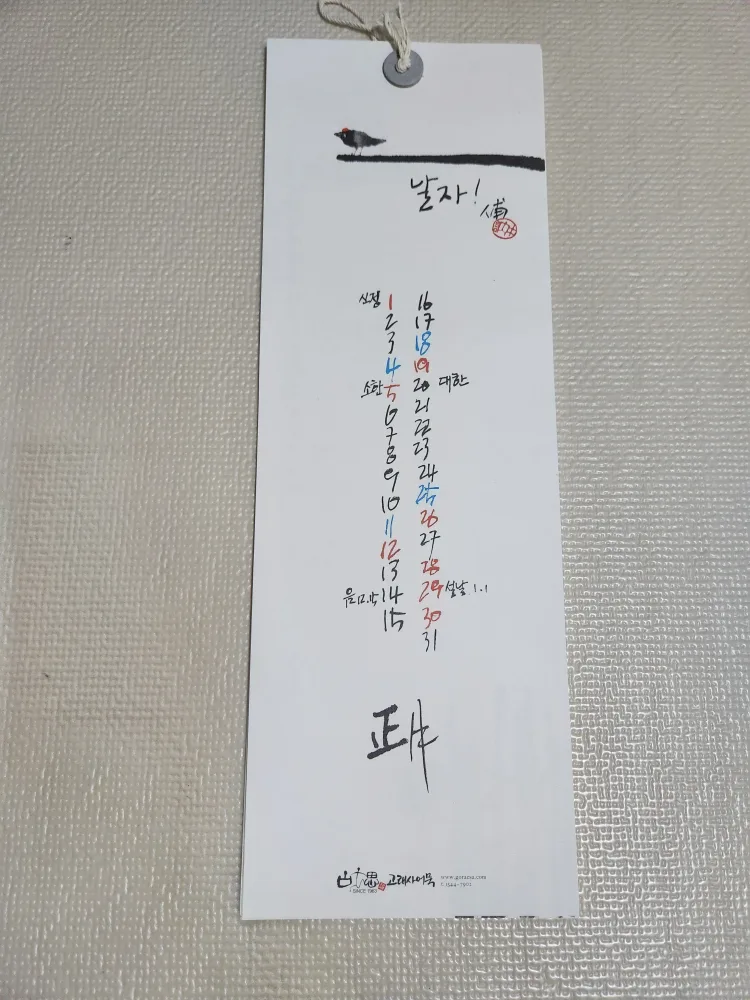 날자!
신정 1 16
2 17
3 18
4 19
소한 5 20 대한
6 21
7 22
8 23
9 24
10 25
11 26
12 27
13 28
음12.15 14 29 설날 1.1
15 30
31
正月
SINCE 1963
고래사어묵
www.goraesa.com